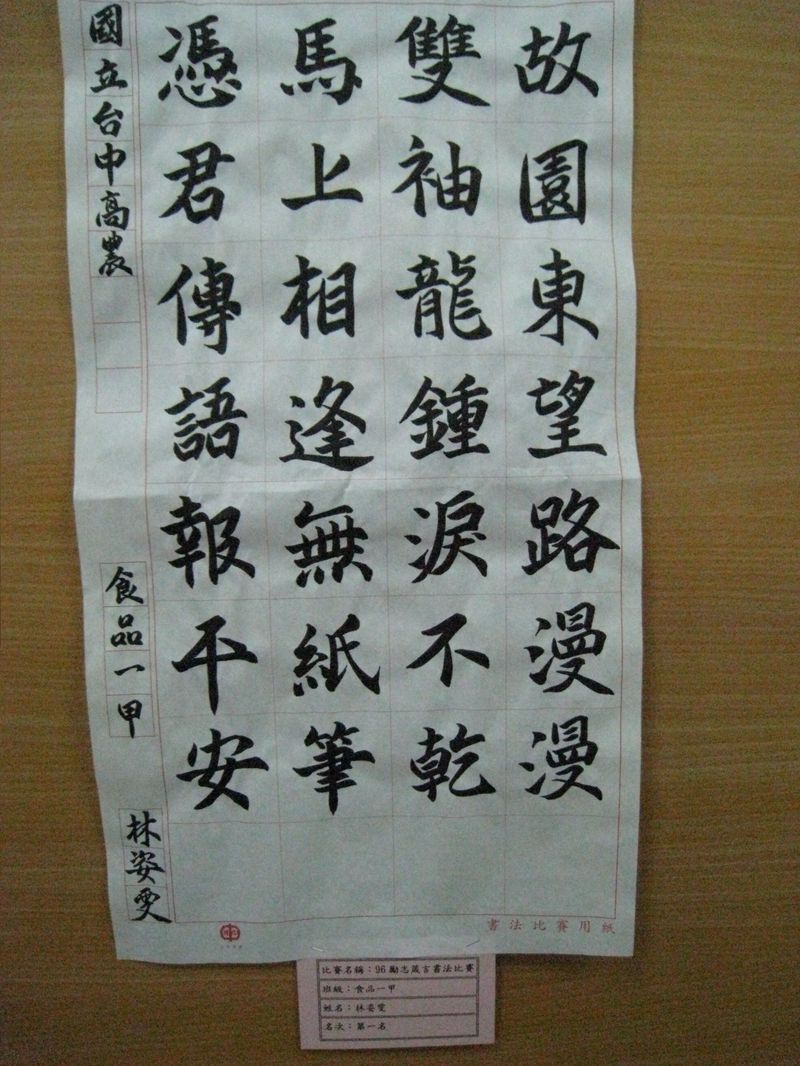 故園東望路漫漫
雙袖龍鍾淚不乾
馬上相逢無紙筆
憑君傳語報平安
國立台中高農
食品一甲
林姿雯
書法比賽用紙
比賽名稱：96勵志箴言書法比賽
班級：食品一甲
姓名：林姿雯
名次：第一名